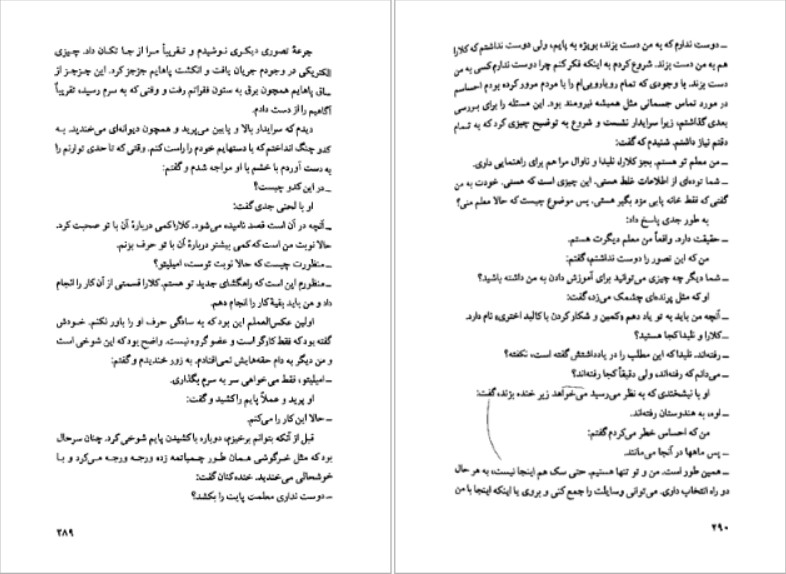 جرعهٔ تصوری دیگری نوشیدم و تقریباً مرا از جا تکان داد. چیزی
الکتریکی در وجودم جریان یافت و انگشت پاهایم جزجز کرد. این جزجز از
ساق پاهایم همچون برق به ستون فقراتم رفت و وقتی که به سرم رسید، تقریباً
آگاهیم را از دست دادم.
دیدم که سرایدار بالا و پایین می‌پرید و همچون دیوانه‌ای می‌خندید. به
کدو چنگ انداختم که با دستهایم خودم را راست کنم. وقتی که تا حدی توازنم را
به دست آوردم با خشم با او مواجه شدم و گفتم:
ـ در این کدو چیست؟
او با لحنی جدی گفت:
ـ آنچه در آن است قصد نامیده می‌شود. کلارا کمی دربارهٔ آن با تو صحبت کرد.
حالا نوبت من است که کمی بیشتر دربارهٔ آن با تو حرف بزنم.
ـ منظورت چیست که حالا نوبت توست، امیلیتو؟
ـ منظورم این است که راهگشای جدید تو هستم. کلارا قسمتی از آن کار را انجام
داد و من باید بقیهٔ کار را انجام دهم.
اولین عکس‌العملم این بود که به سادگی حرف او را باور نکنم. خودش
گفته بود که فقط کارگر است و عضو گروه نیست. واضح بود که این شوخی است
و من دیگر به دام حقه‌هایش نمی‌افتادم. به زور خندیدم و گفتم:
ـ امیلیتو، فقط می‌خواهی سر به سرم بگذاری.
او پرید و عملاً پایم را کشید و گفت:
ـ حالا این کار را می‌کنم.
قبل از آنکه بتوانم برخیزم، دوباره با کشیدن پایم شوخی کرد. چنان سرحال
بود که مثل خرگوشی همان طور چمباتمه زده ورجه ورجه می‌کرد و با
خوشحالی می‌خندید. خنده‌کنان گفت:
ـ دوست نداری معلمت پایت را بکشد؟
۲۸۹
ـ دوست ندارم که به من دست بزند، بویژه به پایم، ولی دوست نداشتم که کلارا
هم به من دست بزند. شروع کردم به اینکه فکر کنم چرا دوست ندارم کسی به من
دست بزند. با وجودی که تمام رویارویی‌ام را با مردم مرور کرده بودم احساسم
در مورد تماس جسمانی مثل همیشه نیرومند بود. این مسئله را برای بررسی
بعدی گذاشتم، زیرا سرایدار نشست و شروع به توضیح چیزی کرد که به تمام
دقتم نیاز داشتم. شنیدم که گفت:
ـ من معلم تو هستم. بجز کلارا، نلیدا و ناوال مرا هم برای راهنمایی داری.
ـ شما توده‌ای از اطلاعات غلط هستی. این چیزی است که هستی. خودت به من
گفتی که فقط خانه پایی مزد بگیر هستی. پس موضوع چیست که حالا معلم منی؟
به طور جدی پاسخ داد:
ـ حقیقت دارد. واقعاً من معلم دیگرت هستم.
من که این تصور را دوست نداشتم، گفتم:
ـ شما دیگر چه چیزی می‌توانید برای آموزش دادن به من داشته باشید؟
او که مثل پرنده‌ای چشمک می‌زد، گفت:
ـ آنچه من باید به تو یاد دهم «کمین و شکار کردن با کالبد اختری» نام دارد.
ـ کلارا و نلیدا کجا هستید؟
ـ رفته‌اند. نلیدا که این مطلب را در یادداشتش گفته است، نگفته؟
ـ می‌دانم که رفته‌اند، ولی دقیقاً کجا رفته‌اند؟
او با نیشخندی که به نظر می‌رسید می‌خواهد زیر خنده بزند، گفت:
ـ اوه، به هندوستان رفته‌اند.
من که احساس خطر می‌کردم گفتم:
ـ پس ماهها در آنجا می‌مانند.
ـ همین طور است. من و تو تنها هستیم. حتی سگ هم اینجا نیست، به هر حال
دو راه انتخاب داری. می‌توانی وسایلت را جمع کنی و بروی یا اینکه اینجا با من
۲۹۰